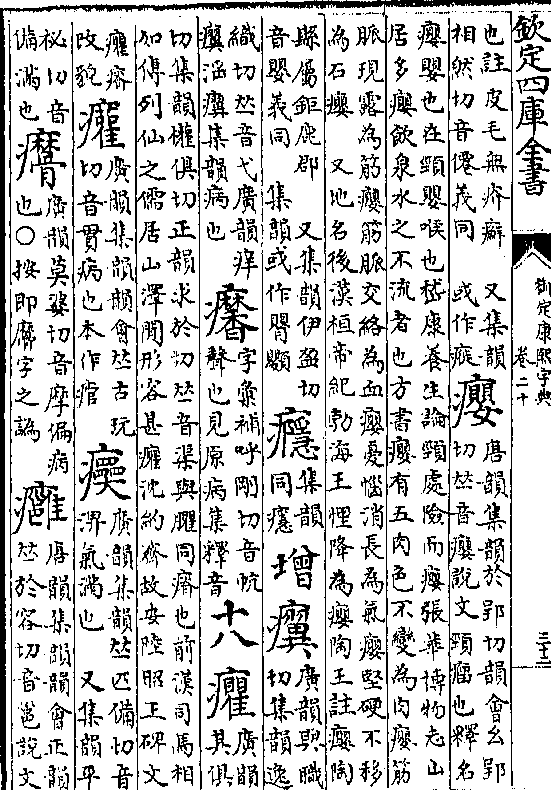 欽定四庫全書
御定康熙字典
卷二十
也註皮毛無疥癬　又集韻
相然切音僊義同　或作㾌
癭
唐韻集韻於郢切韻會幺郢
切𠀤音癭說文頸瘤也釋名
癭嬰也在頸嬰喉也嵇康養生論頸處險而癭張華博物志山
居多癭飲泉水之不流者也方書癭有五肉色不變為肉癭筋
脈現露為筋癭筋脈交絡為血癭憂惱消長為氣癭堅硬不移
為石癭　又地名後漢桓帝紀勃海王悝降為癭陶王註癭陶
縣屬鉅鹿郡　又集韻伊盈切
音嬰義同　集韻或作
癮
集韻
同
增
廣韻與職
切集韻逸
織切𠀤音弋廣韻痒
淫集韻病也
字彙補呼剛切音
聲也見原病集釋音
十八
癯
廣韻
其俱
切集韻權俱切正韻求於切𠀤音渠與臞同瘠也前漢司馬相
如傳列仙之儒居山澤間形容甚癯沈約齊故安陸昭王碑文
癯瘠
改貌
廣韻集韻韻會𠀤古玩
切音貫病也本作痯
廣韻集韻𠀤匹備切音
濞氣滿也　又集韻平
祕切音
備滿也
廣韻莫婆切音摩偏病
也○按即字之譌
癰
唐韻集韻韻會正韻
𠀤於容切音邕說文